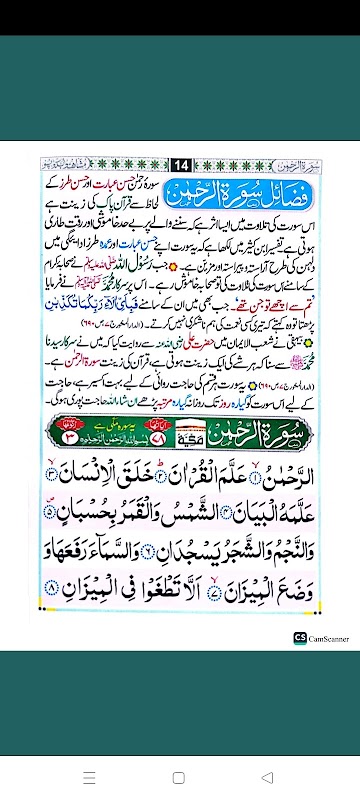 سورۃ الرحمٰن
14
فضائل سُوْرَةُ الرَّحْمٰن
سورۂ رحمٰن حسن عبارت اور حسن طرز کے
لحاظ سے قرآن پاک کی زینت ہے
اس سورت کی تلاوت میں ایسا اثر ہے کہ سننے والے پر بے حد خاموشی اور رقت طاری
ہوتی ہے۔ تفسیر ابن کثیر میں لکھا ہے کہ یہ سورت اپنے حسن عبارت اور عمدہ طرز ادائیگی میں
دلہن کی طرح آراستہ و پیراستہ اور مزین ہے۔ جب رسول اللہ ﷺ نے صحابہ کرام
کے سامنے اس سورت کی تلاوت کی تو صحابہ خاموش رہے۔ اس پر سرکار محمد ﷺ نے فرمایا
تم سے اچھے تو جن تھے۔ جب بھی میں ان کے سامنے فَبِاَيِّ اٰلَآءِ رَبِّكُمَا تُكَذِّبٰنِ
پڑھتا تو وہ کہتے کہ تیری کسی نعمت کی ہم ناشکری نہیں کرتے۔ (الدر المنثور ج ۷ ص ۶۹۰)
بیہقی نے شعب الایمان میں حضرت علی سے روایت کیا کہ میں نے سرکار سیدنا
محمد ﷺ سے سنا کہ ہر شے کی ایک زینت ہوتی ہے، قرآن کی زینت سورۃ الرحمن ہے۔
(الدر المنثور ج ۷ ص ۶۹۰) یہ سورت ہر قسم کی حاجت روائی کے لیے بہت اکسیر ہے، حاجت
کے لیے اس سورت کو گیارہ روز تک روزانہ گیارہ مرتبہ پڑھے ان شاء اللہ حاجت پوری ہوگی۔
سُوْرَةُ الرَّحْمٰن مَكِّيَّة اٰیاتها ۷۸ یہ سورہ مکی ہے بسم اللہ الرحمن الرحیم رکوعاتها ۳
اَلرَّحْمٰنُ ۙ۱ عَلَّمَ الْقُرْاٰنَ ؕ۲ خَلَقَ الْاِنْسَانَ ۙ۳
عَلَّمَهُ الْبَيَانَ ۴ اَلشَّمْسُ وَالْقَمَرُ بِحُسْبَانٍ ۪۵
وَّالنَّجْمُ وَالشَّجَرُ يَسْجُدَانِ ۶ وَالسَّمَآءَ رَفَعَهَا وَ
وَضَعَ الْمِيْزَانَ ۙ۷ اَلَّا تَطْغَوْا فِى الْمِيْزَانِ ۸
CS CamScanner